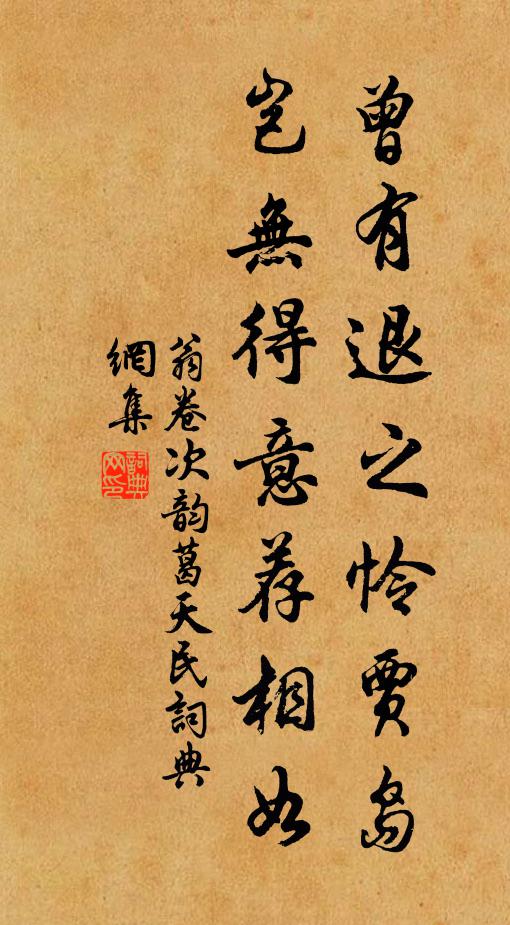 曾有退之怜贾岛
岂無得意荐相如
翁卷次韵葛天民詞典
網集
詞典
网印